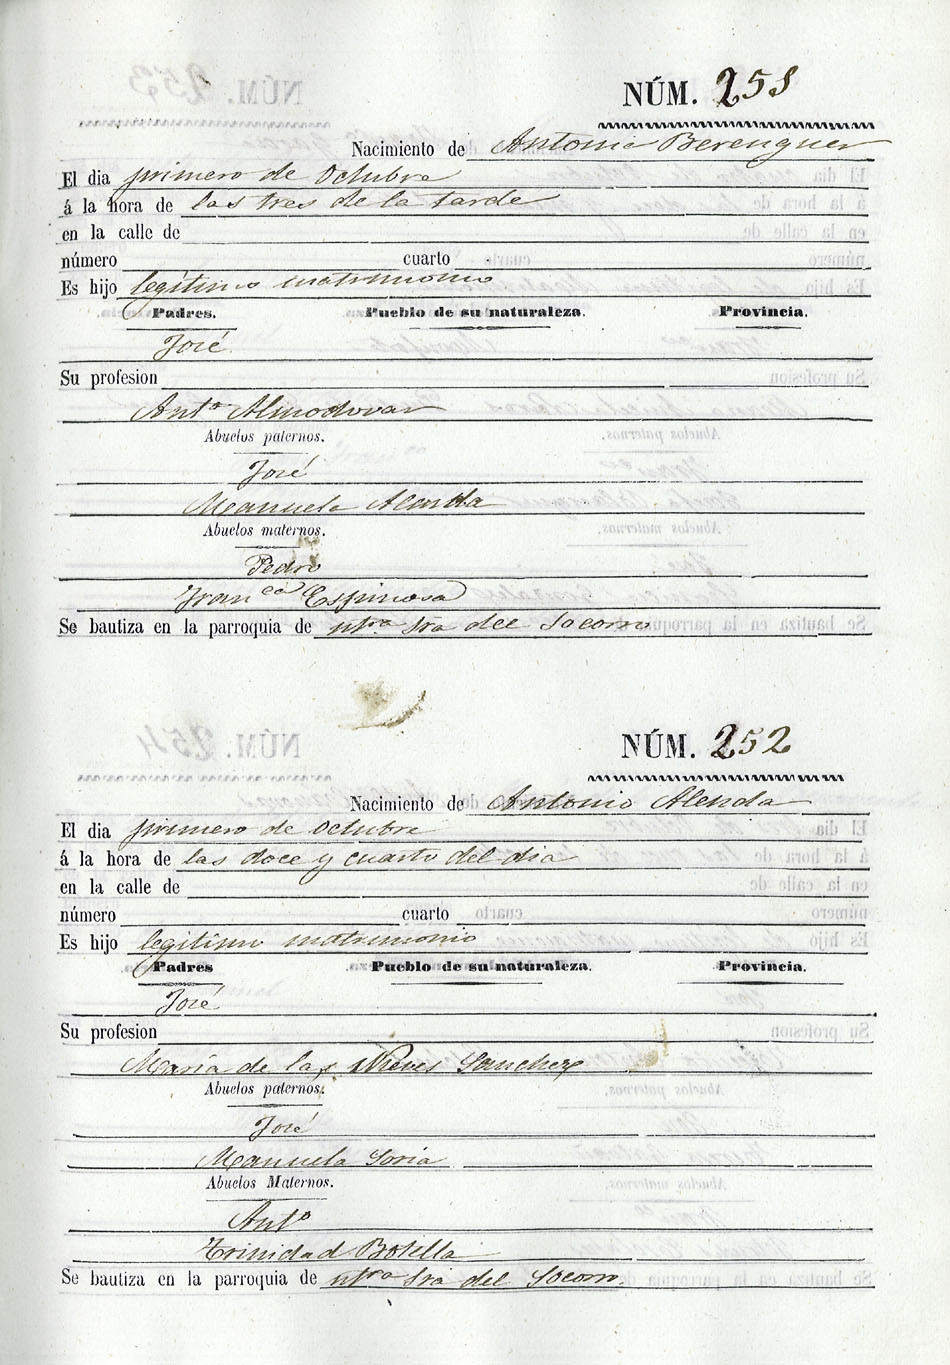 NÚM. 251
Nacimiento de Antonia Berenguer
El dia primero de Octubre
á la hora de las tres de la tarde
en la calle de
número cuarto
Es hijo legítimo matrimonio
Padres. Pueblo de su naturaleza. Provincia.
José
Su profesion
Antª Almodovar
Abuelos paternos.
José
Manuela Alenda
Abuelos maternos.
Pedro
Franca Espinosa
Se bautiza en la parroquia de ntra Sra del Socorro
NÚM. 252
Nacimiento de Antonio Alenda
El dia primero de Octubre
á la hora de las doce y cuarto del dia
en la calle de
número cuarto
Es hijo legitimo matrimonio
Padres Pueblo de su naturaleza. Provincia.
José
Su profesion
María de las Nieves Sanchez
Abuelos paternos.
José
Manuela Soria
Abuelos Maternos.
Antº
Trinidad Botella
Se bautiza en la parroquia de ntra Sra del Socorro.